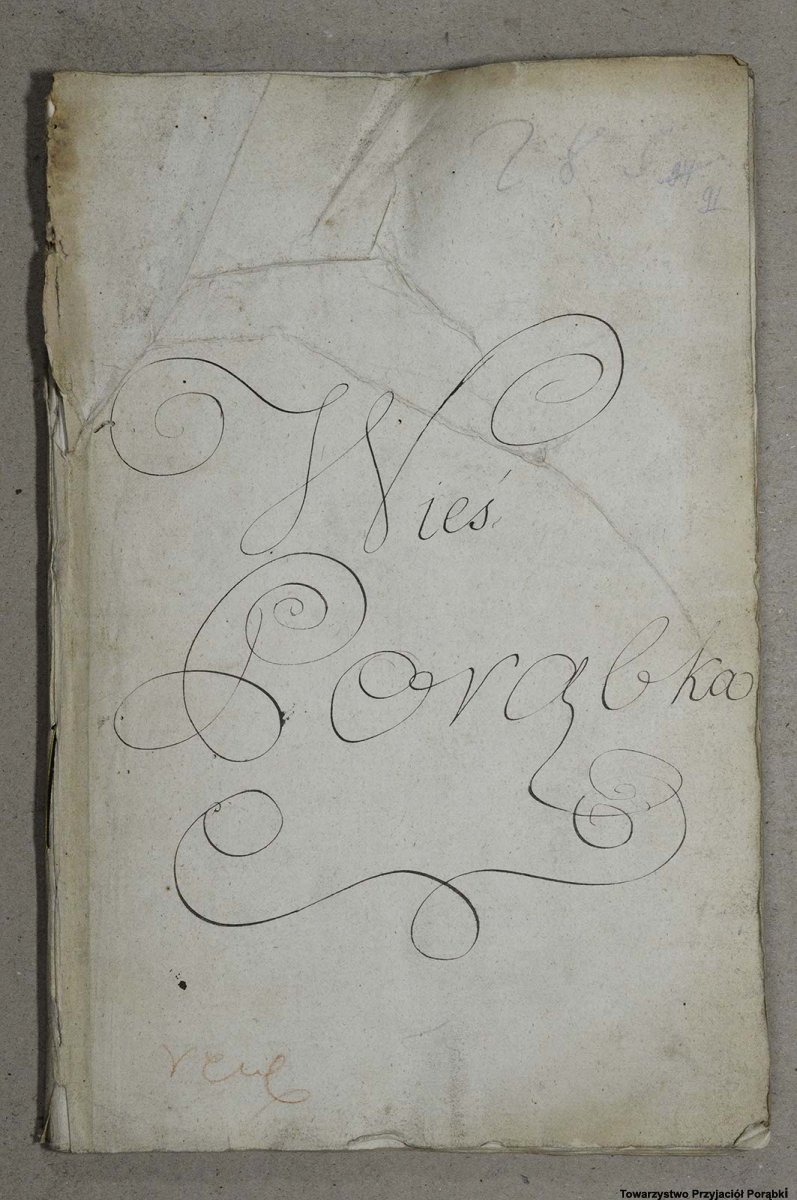 Wieś
Porąbka
Towarzystwo Przyjaciół Porąbki